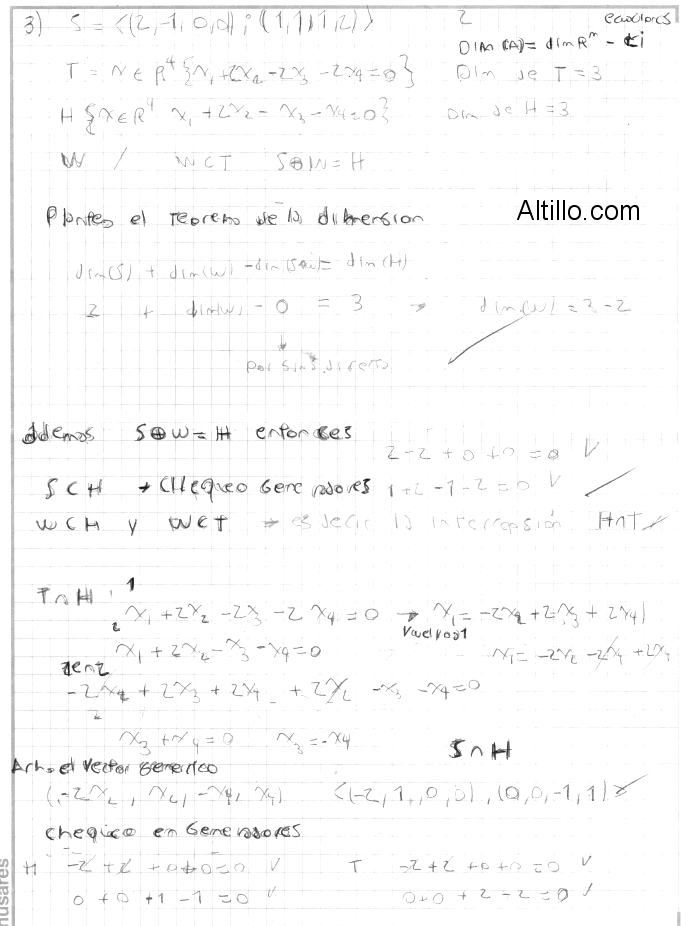 3) S = <(2,-1,0,0); (1,1,1,2)> 2 ecuaciones
DIM(A) = dim R^n - ci
T = x ∈ R^4 {x1+2x2-2x3-2x4=0} Dim de T = 3
H {x∈R^4 x1+2x2-x3-x4=0} Dim de H = 3
W / W⊂T S⊕W=H
Planteo el teorema de la dimension
Altillo.com
dim(S) + dim(W) - dim(S∩W) = dim(H)
2 + dim(W) - 0 = 3 → dim(W) = 3-2
por suma directa
Ademas S⊕W=H entonces
2-2+0+0=0 V
S⊂H → CHequeo Generadores 1+2-1-2=0 V
W⊂H y W⊂T → es decir la intercepsión H∩T
T∩H 1
x1+2x2-2x3-2x4=0 → x1=-2x2+2x3+2x4
2 x1+2x2-x3-x4=0 Vuelvo a 1 x1=-2x2-2x4+2x4
1 en 2
-2x2+2x3+2x4+2x2-x3-x4=0
x3+x4=0 x3=-x4
S∩H
Armo el vector generico
(-2x2, x2, -x4, x4) <(-2,1,0,0),(0,0,-1,1)>
chequeo en Generadores
H -2+2+0+0=0 V T -2+2+0+0=0 V
0+0+1-1=0 V 0+0+2-2=0 V
husares